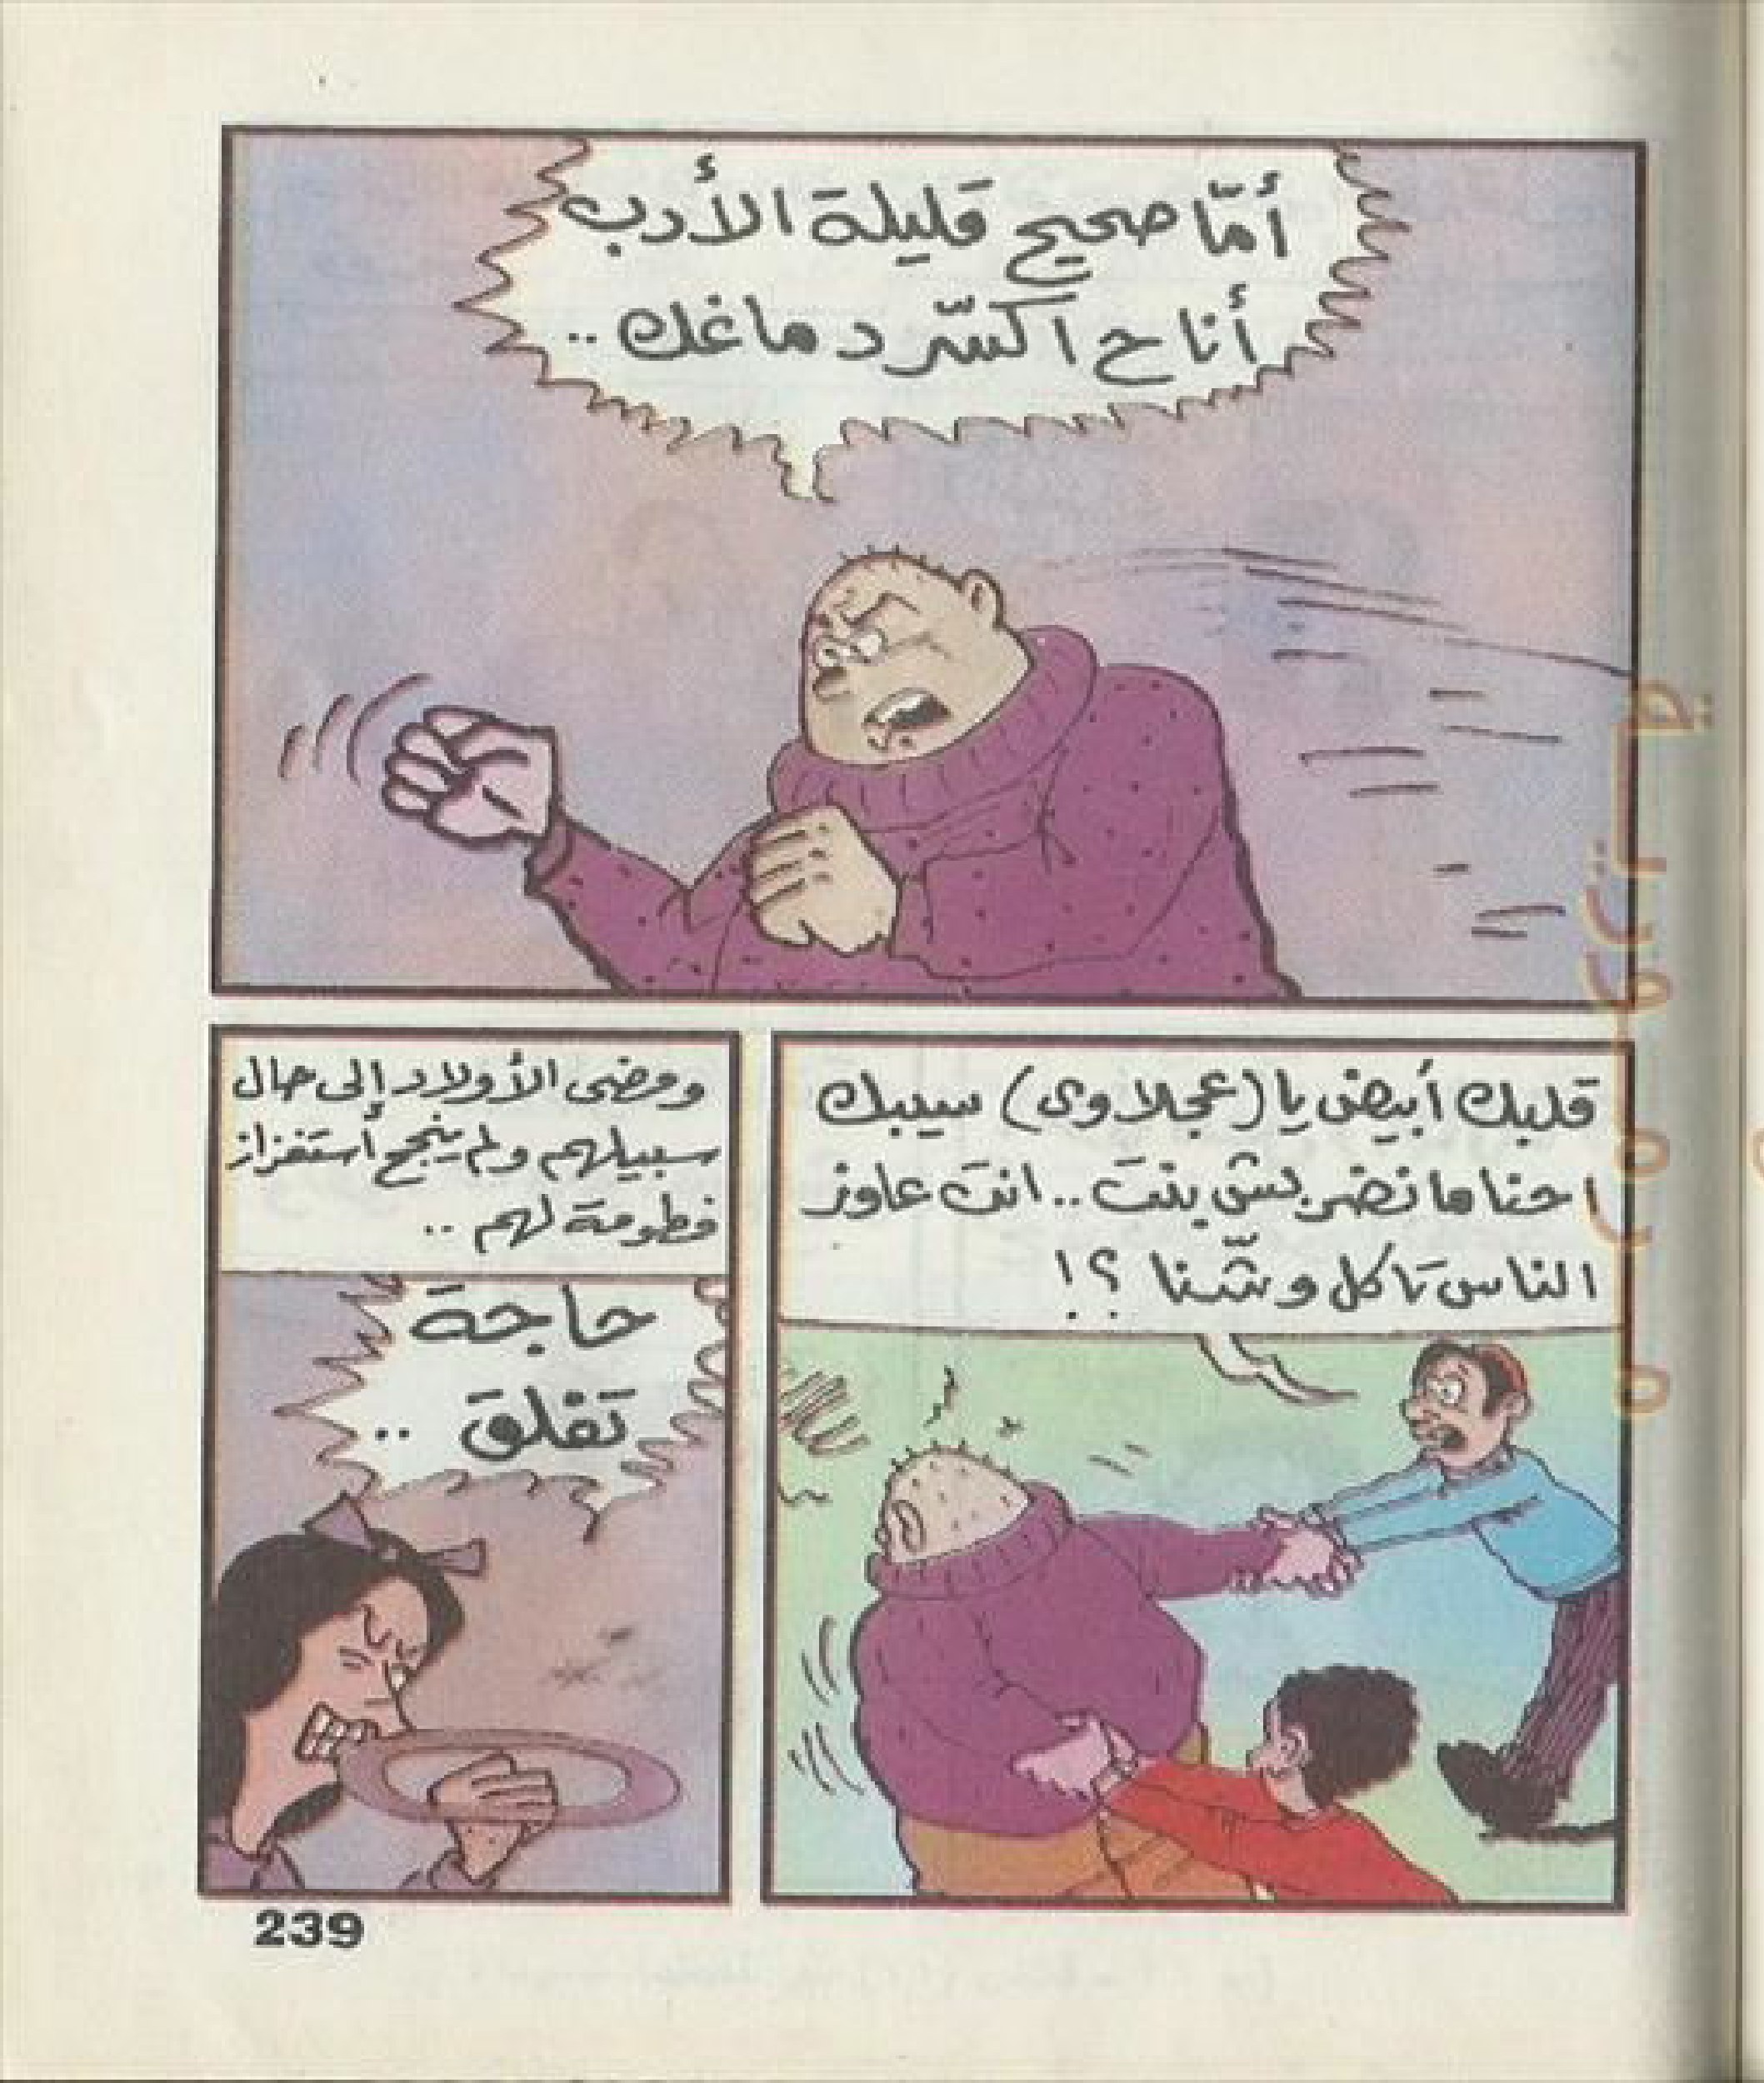 أمّا صحيح قليلة الأدب
أنا ح اكسّر دماغك ..
قلبك أبيض يا (عجلاوى) سيبك
احنا ما نضربش بنت .. انت عاوز
الناس تاكل وشّنا ؟!
ومضى الأولاد إلى حال
سبيلهم ولم ينجح أستفزاز
فطومة لهم ..
حاجة
تفلق ..
239